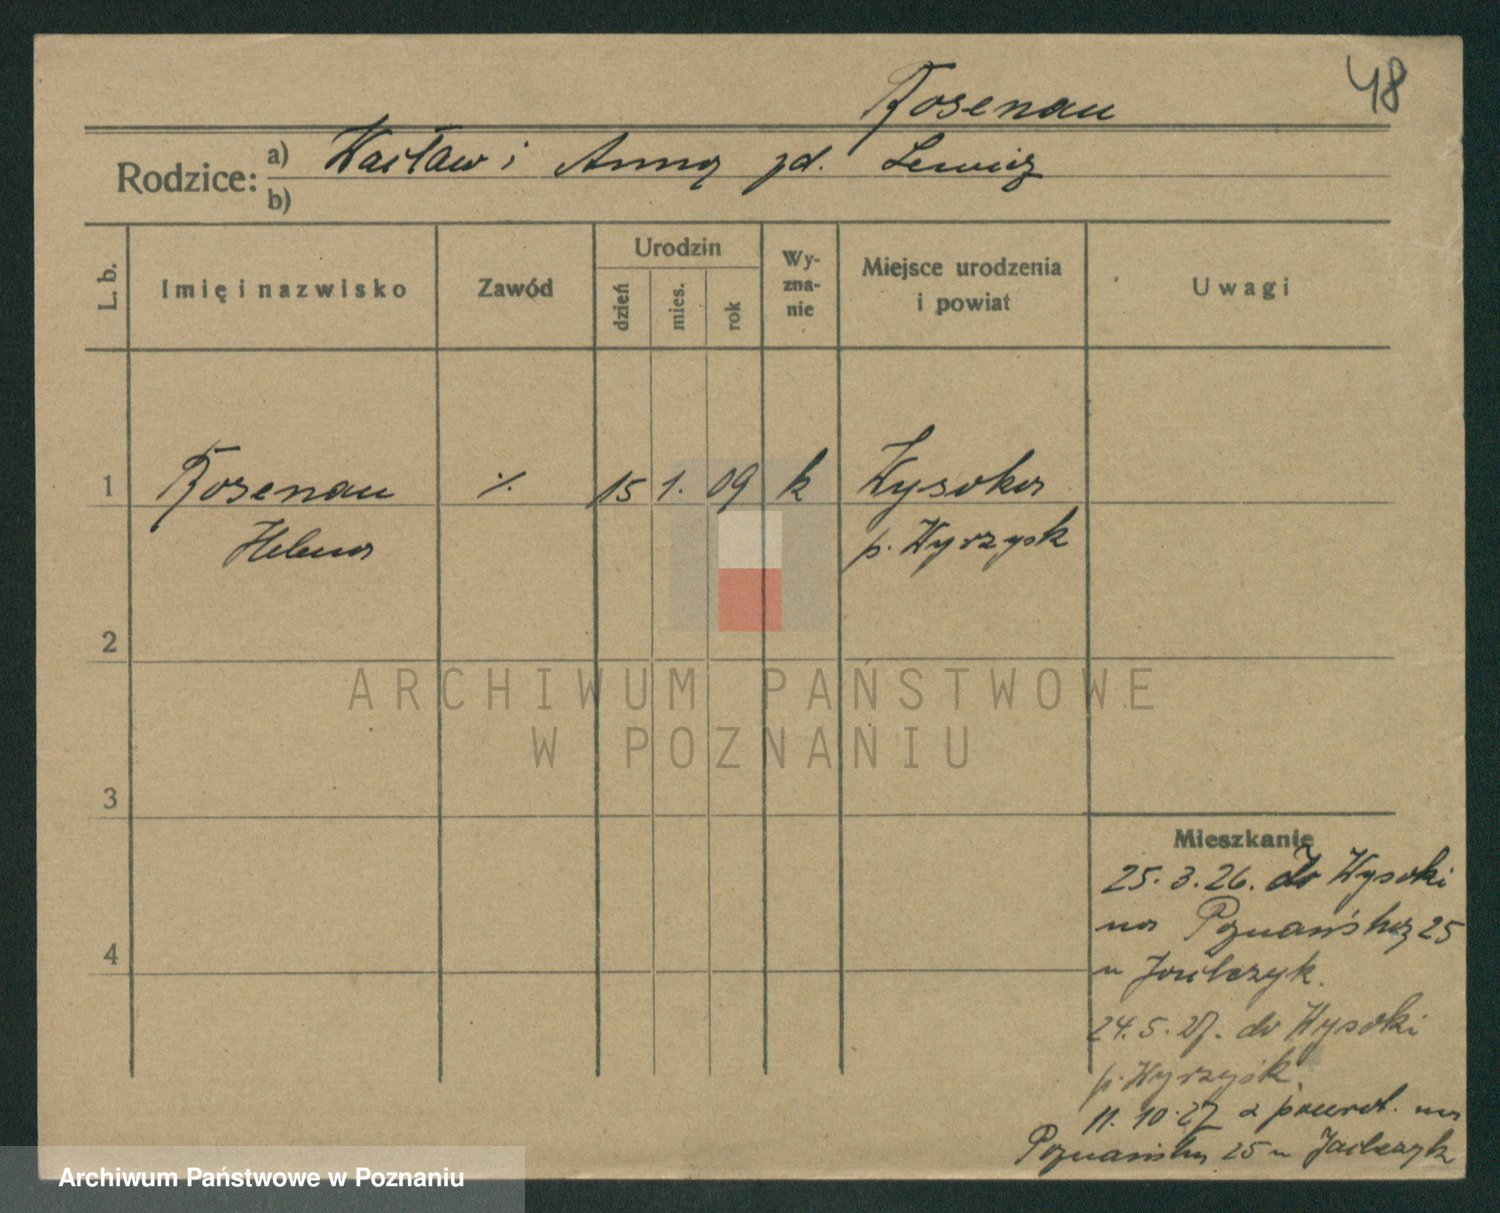 48
Rosenau
Rodzice: a) Wacław i Anna zd. Lewicz
b)
L. b. Imię i nazwisko Zawód Urodzin dzień mies. rok Wy-zna-nie Miejsce urodzenia i powiat Uwagi
1 Rosenau ./. 15 1. 09 k Wysoka
Helena p. Wyrzysk
2
3
4
Mieszkanie
25. 3. 26. do Wysoki
na Poznańską 25
u
24. 5. 27. do Wysoki
p. Wyrzysk.
11. 10. 27 z powrot. na
Poznańską 25 u
ARCHIWUM PAŃSTWOWE
W POZNANIU
Archiwum Państwowe w Poznaniu